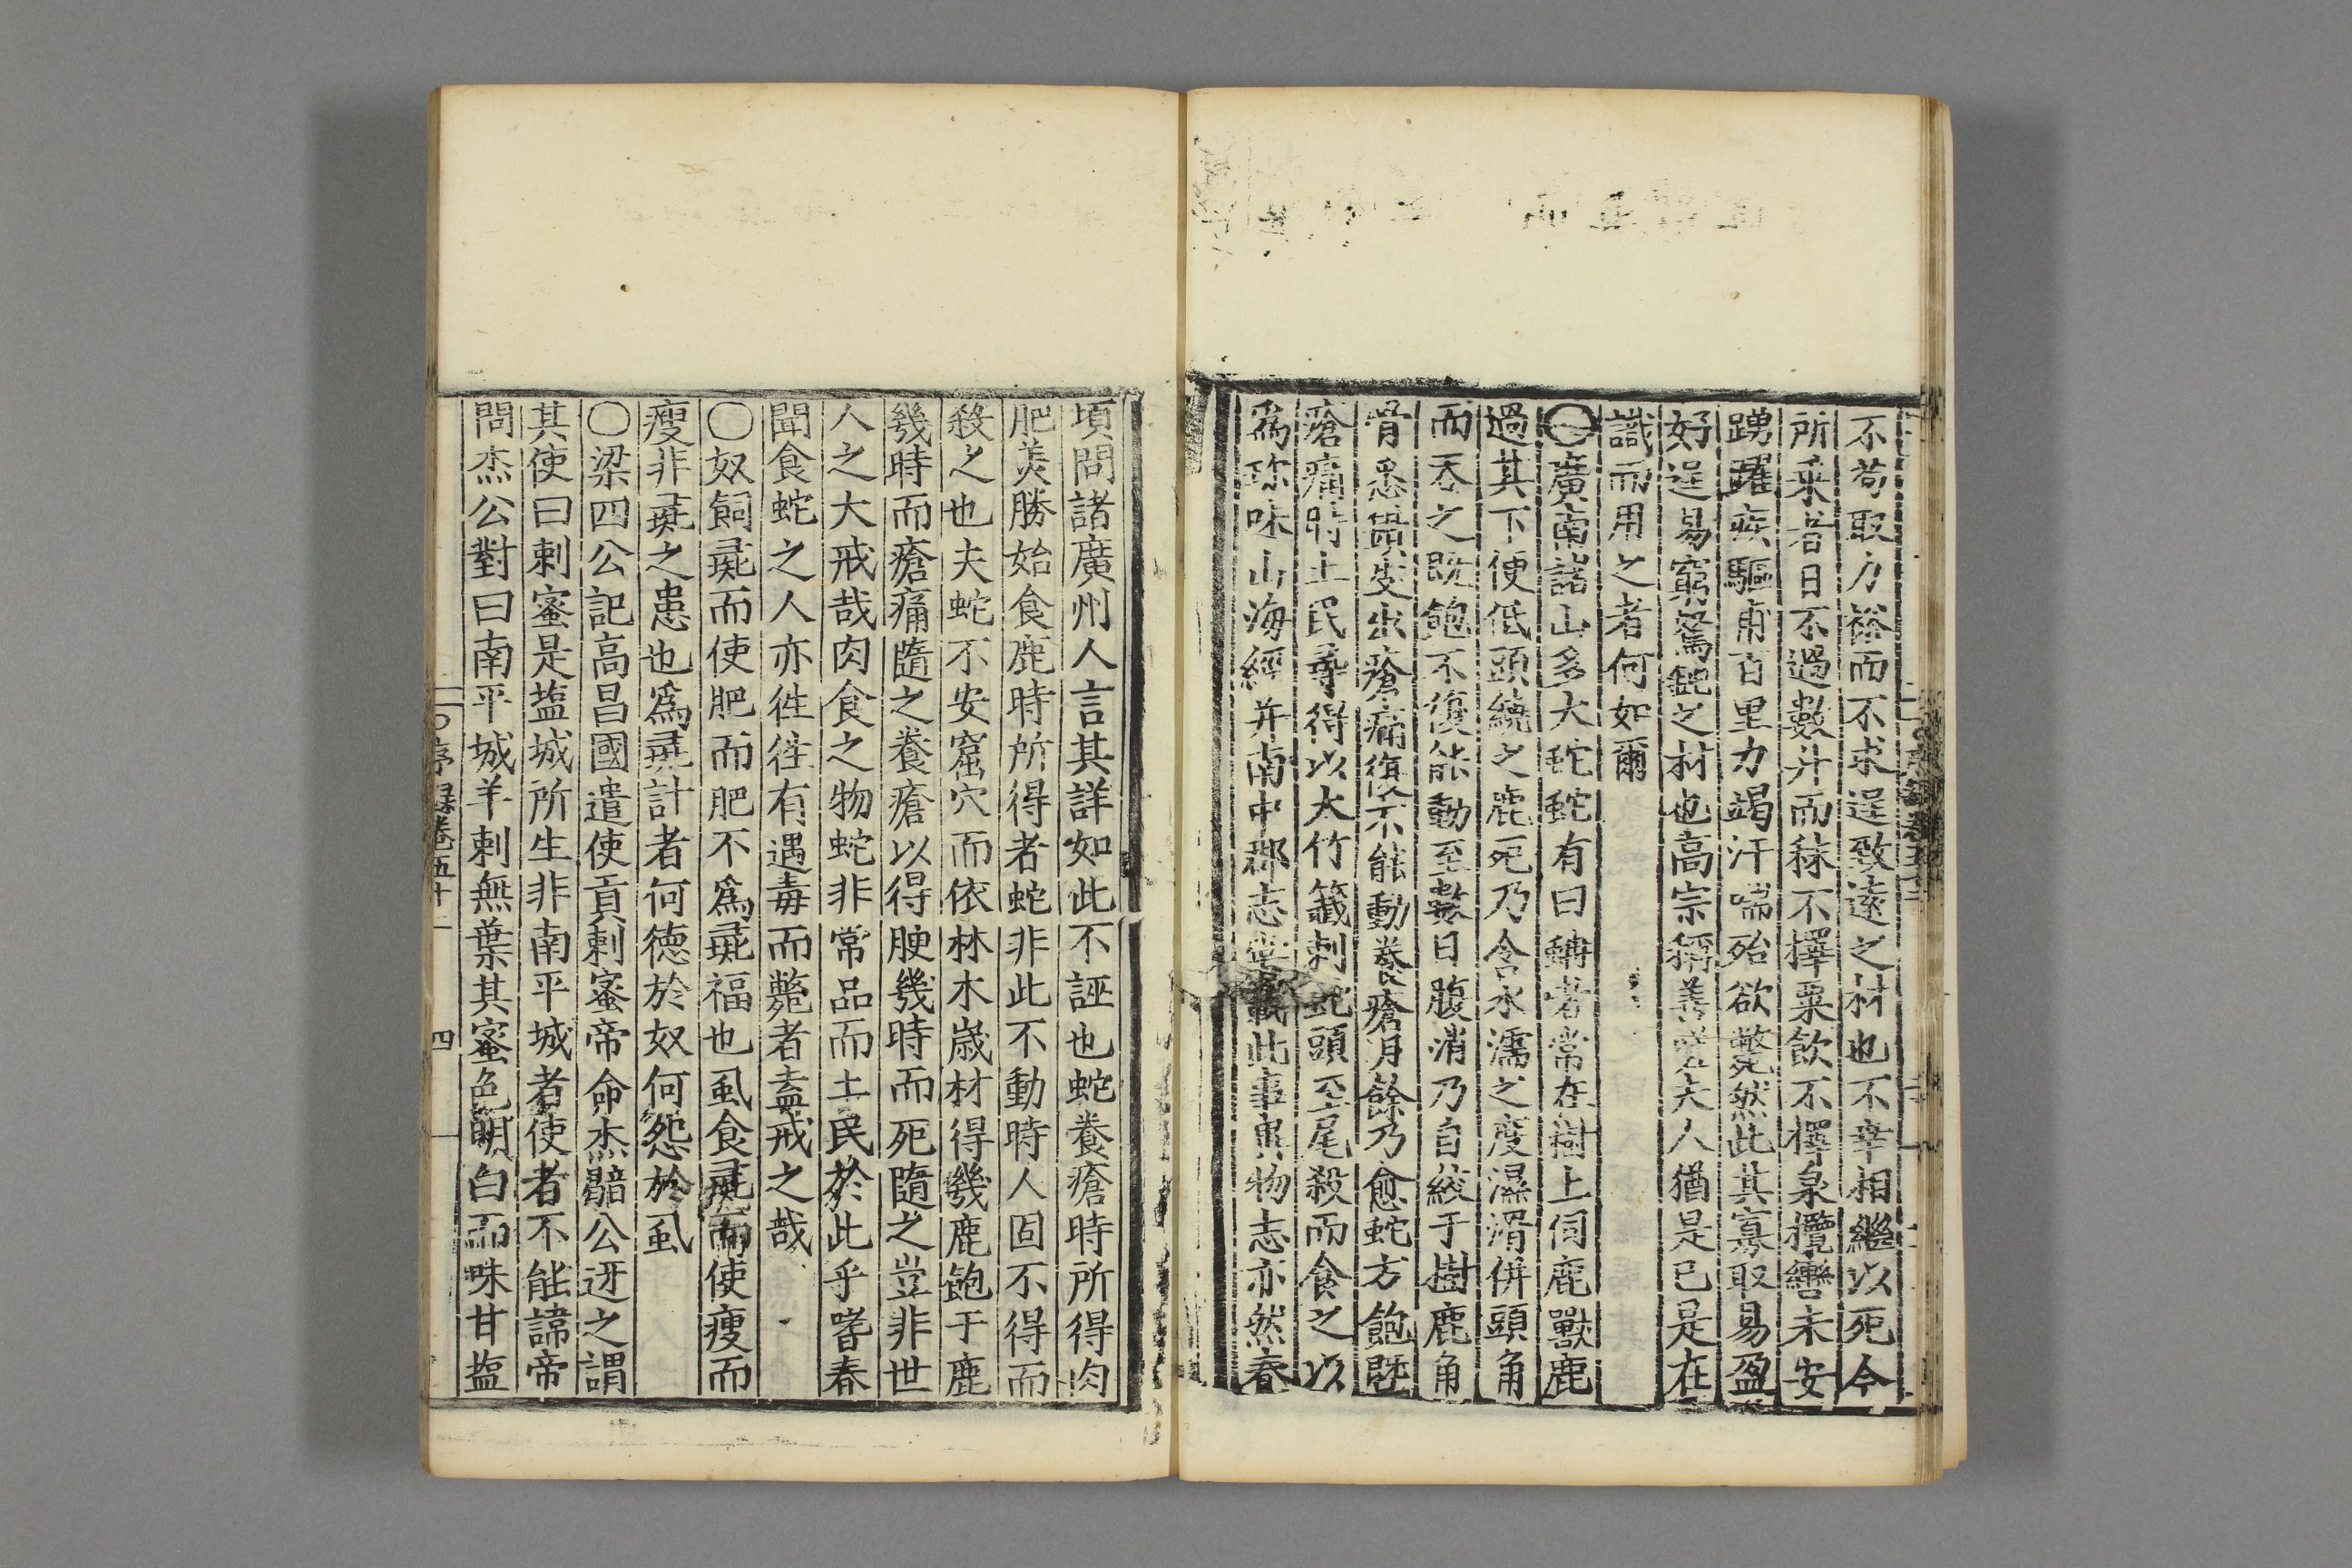 不苟取力裕而不求逞致遠之材也不幸相繼以死今
所乘者日不過數升而秣不擇粟飲不擇泉攬轡未安
踴躍疾驅甫百里力竭汗喘殆欲斃然此其寡取易盈
好逞易窮駑鈍之材也高宗稱善 夫人猶是已是在
識而用之者何如爾
〇廣南諸山多大蛇蛇有曰蚺者常在樹上伺鹿獸鹿
過其下便低頭繞之鹿死乃含水濡之度濕滑併頭角
而吞之既飽不復能動至數日腹消乃自絞于樹鹿角
骨悉鑽皮出瘡痛復不能動養瘡月餘乃愈蛇方飽既
瘡痛時土民尋得以大竹籤刺蛇頭至尾殺而食之以
爲珍味山海經并南中郡志嘗載此事異物志亦然春
頃問諸廣州人言其詳如此不誣也蛇養瘡時所得肉
肥羙勝始食鹿時所得者蛇非此不動時人固不得而
殺之也夫蛇不安窟穴而依林木歲材得幾鹿飽于鹿
幾時而瘡痛隨之養瘡以得腴幾時而死隨之豈非世
人之大戒哉肉食之物蛇非常品而土民於此乎嗜春
聞食蛇之人亦徃徃有遇毒而斃者盍戒之哉
〇奴飼彘而使肥而肥不爲彘福也虱食彘而使瘦而
瘦非彘之患也爲彘計者何德於奴何怨於虱
〇梁四公記高昌國遣使貢刺蜜帝命杰公迓之謂
其使曰刺蜜是塩城所生非南平城者使者不能諱帝
問杰公對曰南平城羊刺無葉其蜜色明白而味甘塩
〇序錄卷五十一
四